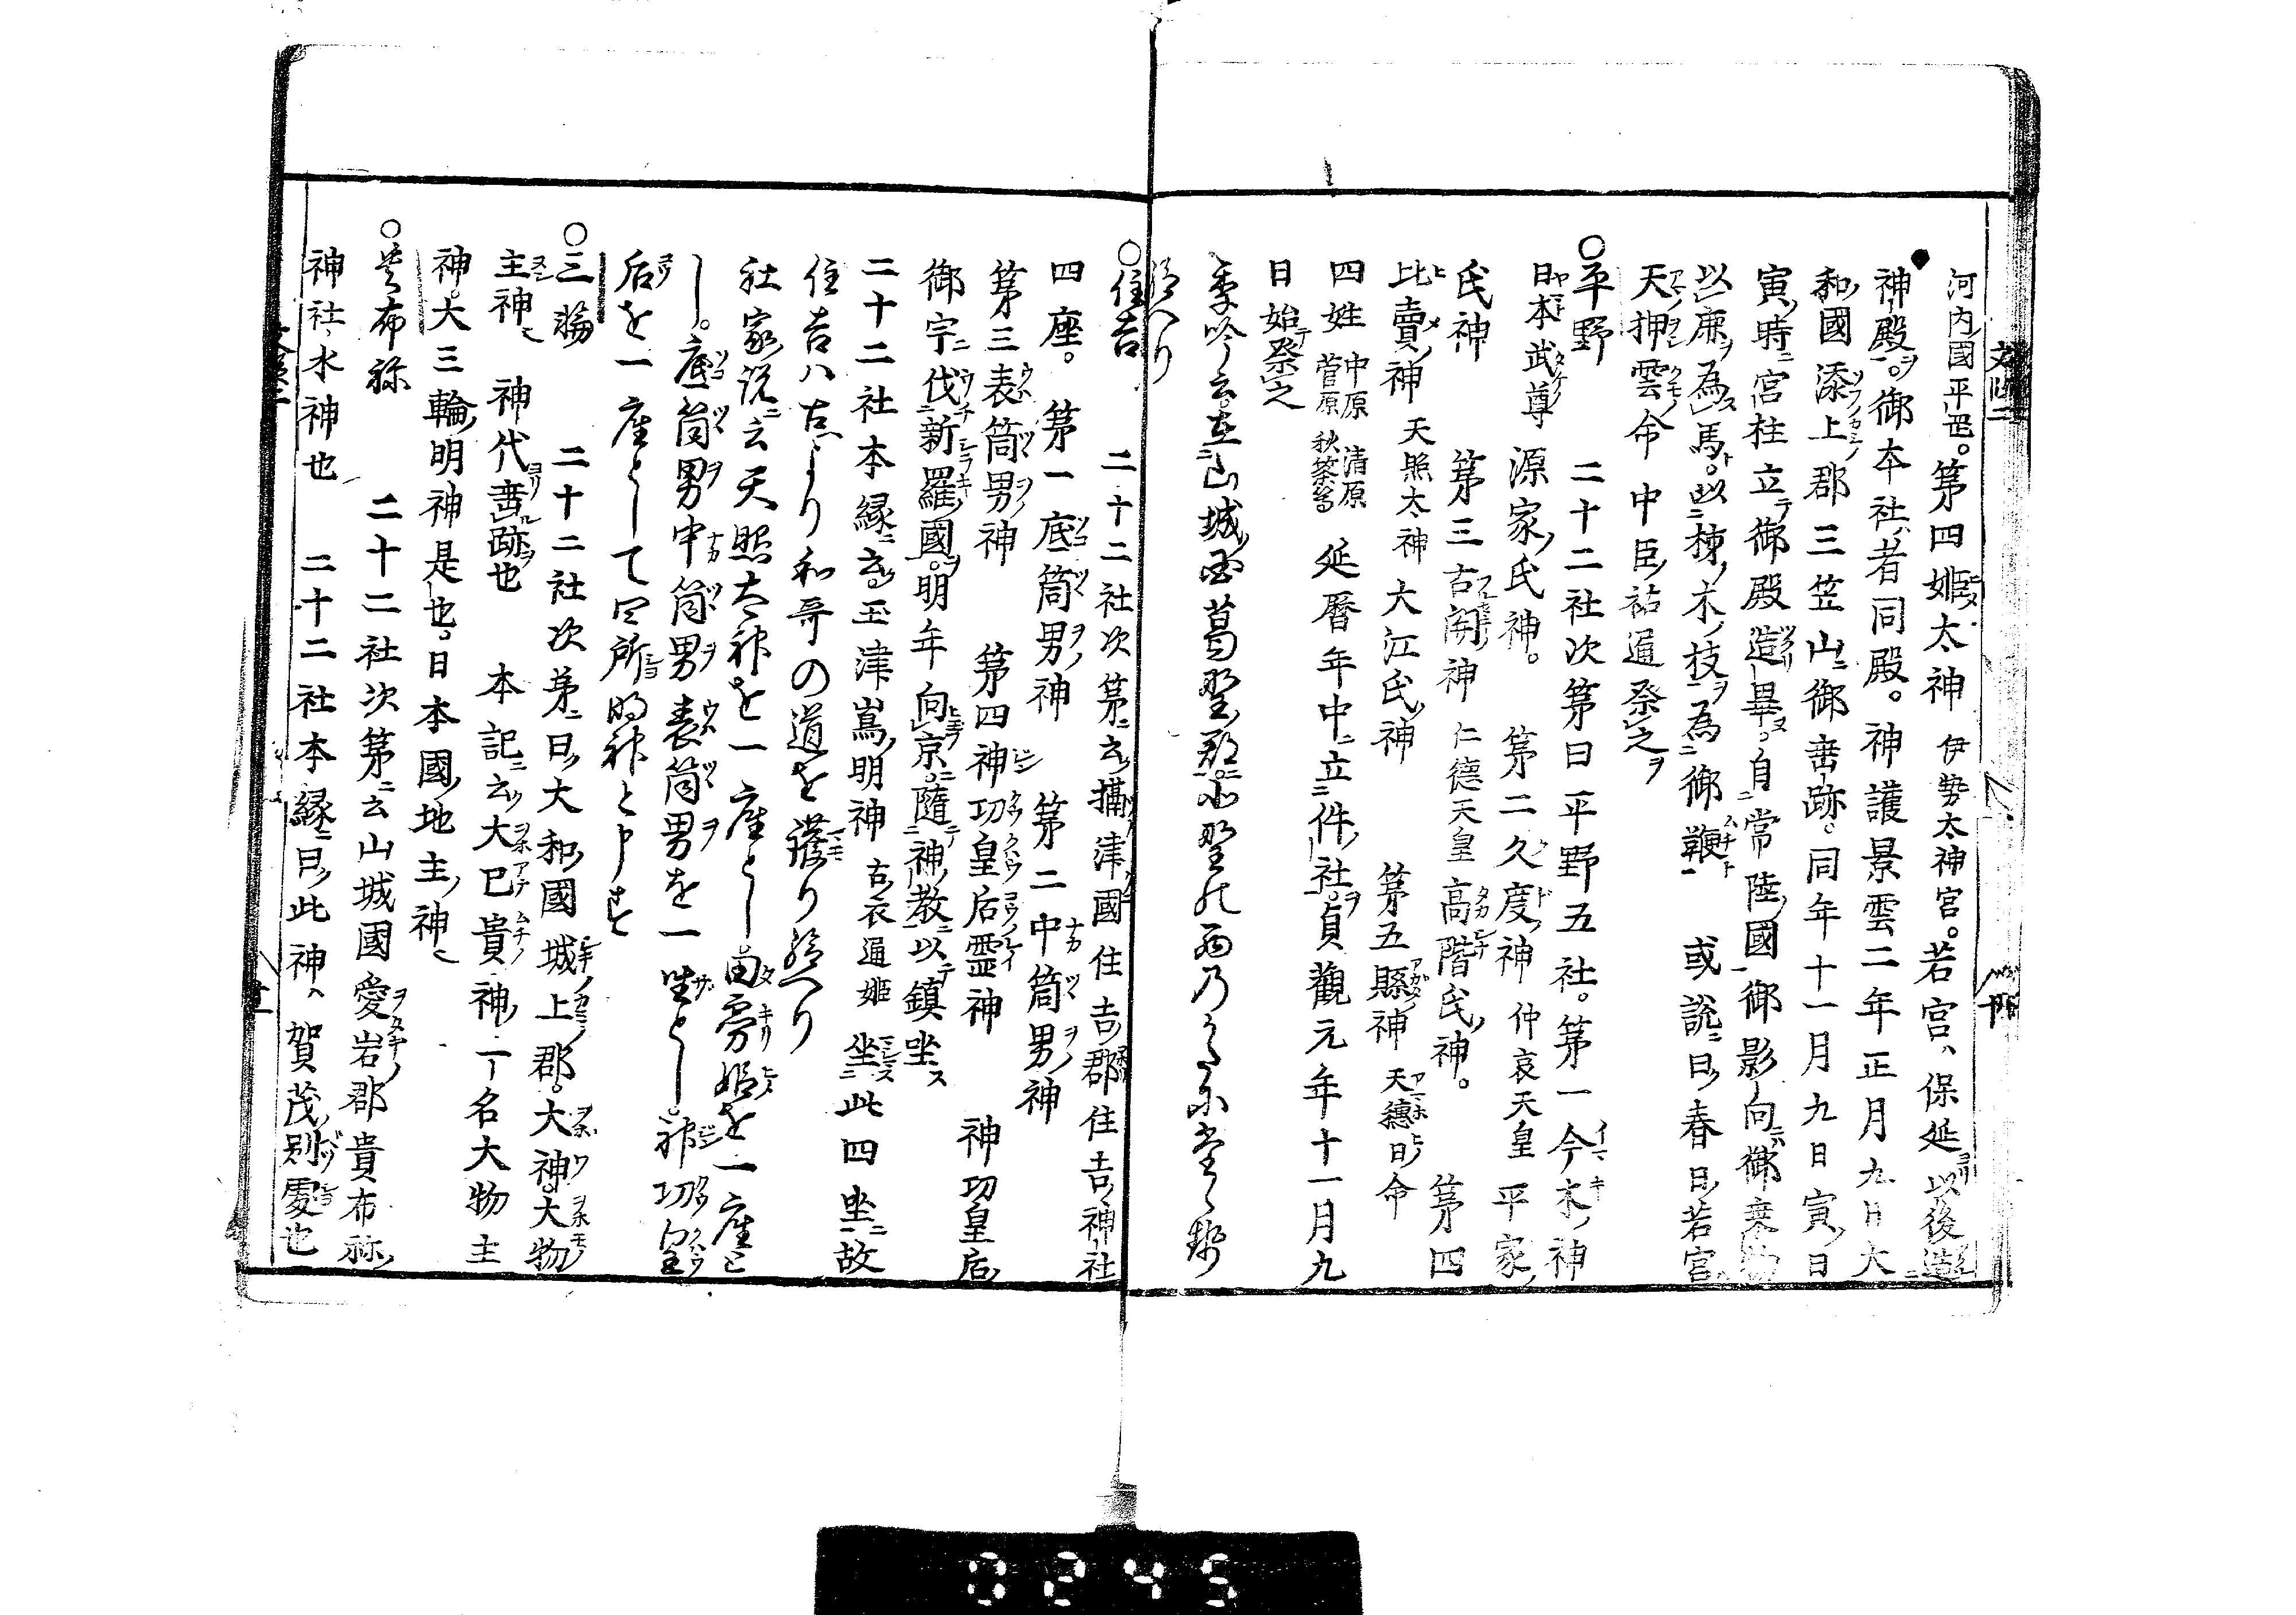 河内國平岡。第四姫太神 伊勢太神宮。若宮ハ保延以後造
神殿。御本社者同殿。神護景雲二年正月九日大
和國添上郡三笠山御垂跡。同年十一月九日寅日
寅時宮柱立御殿造畢。自常陸國御影向御乗物
以鹿為馬。以棟木枝為御鞭 或説曰春日若宮
天押雲命 中臣祐通祭之
○平野 二十二社次第曰平野五社。第一今木神
日本武尊 源家氏神。 第二久度神 仲哀天皇 平家
氏神 第三古開神 仁徳天皇 高階氏神。 第四
比賣神 天照太神 大江氏神 第五縣神 天穂日命
四姓 中原 清原 菅原 秋篠等 延暦年中立件社。貞観元年十一月九
日始祭之
季吟云在山城国葛野郡
給へり
○住吉 二十二社次第云攝津國住吉郡住吉神社
四座。 第一底筒男神 第二中筒男神
第三表筒男神 第四神功皇后霊神 神功皇后
御宇伐新羅國。明年向京。随神教以鎮坐
二十二社本縁云玉津嶌明神 衣通姫 坐此四坐故
住吉ハ古より和哥の道を護り給へり
社家説云天照太神を一座とし 一座と
し。底筒男中筒男表筒男を一坐とし。神功皇
后を一座として四所明神と申す
○三輪 二十二社次第曰大和國城上郡。大神大物
主神 神代垂跡也 本記云大己貴神一名大物主
神。大三輪明神是也。日本國地主神
○貴布祢 二十二社次第云山城國愛岩郡貴布祢
神社水神也 二十二社本縁曰此神ハ賀茂別處也
0245